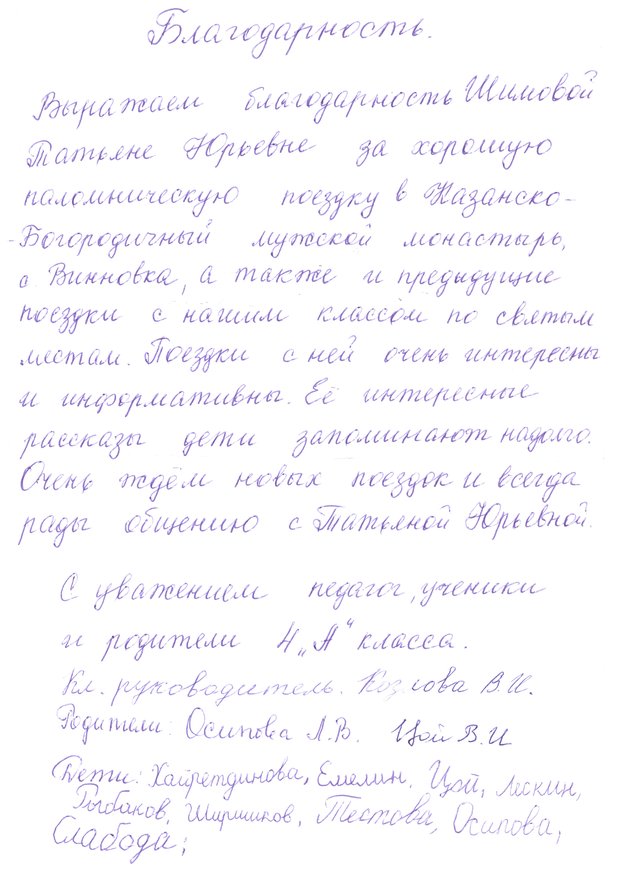 Благодарность.
Выражаем благодарность Шимовой
Татьяне Юрьевне за хорошую
паломническую поездку в Казанско-
-Богородичный мужской монастырь,
с Винновка, а также и предыдущие
поездки с нашим классом по святым
местам. Поездки с ней очень интересны
и информативны. Её интересные
рассказы дети запоминают надолго.
Очень ждём новых поездок и всегда
рады общению с Татьяной Юрьевной.
С уважением педагог, ученики
и родители 4 „А“ класса.
Кл. руководитель. Козлова В.И.
Родители: Осипова Л.В. Цой В.И
Дети: Хайретдинова, Емелин, Цой, Лескин,
Рыбаков, Ширшиков, Тестова, Осипова,
Слабода;